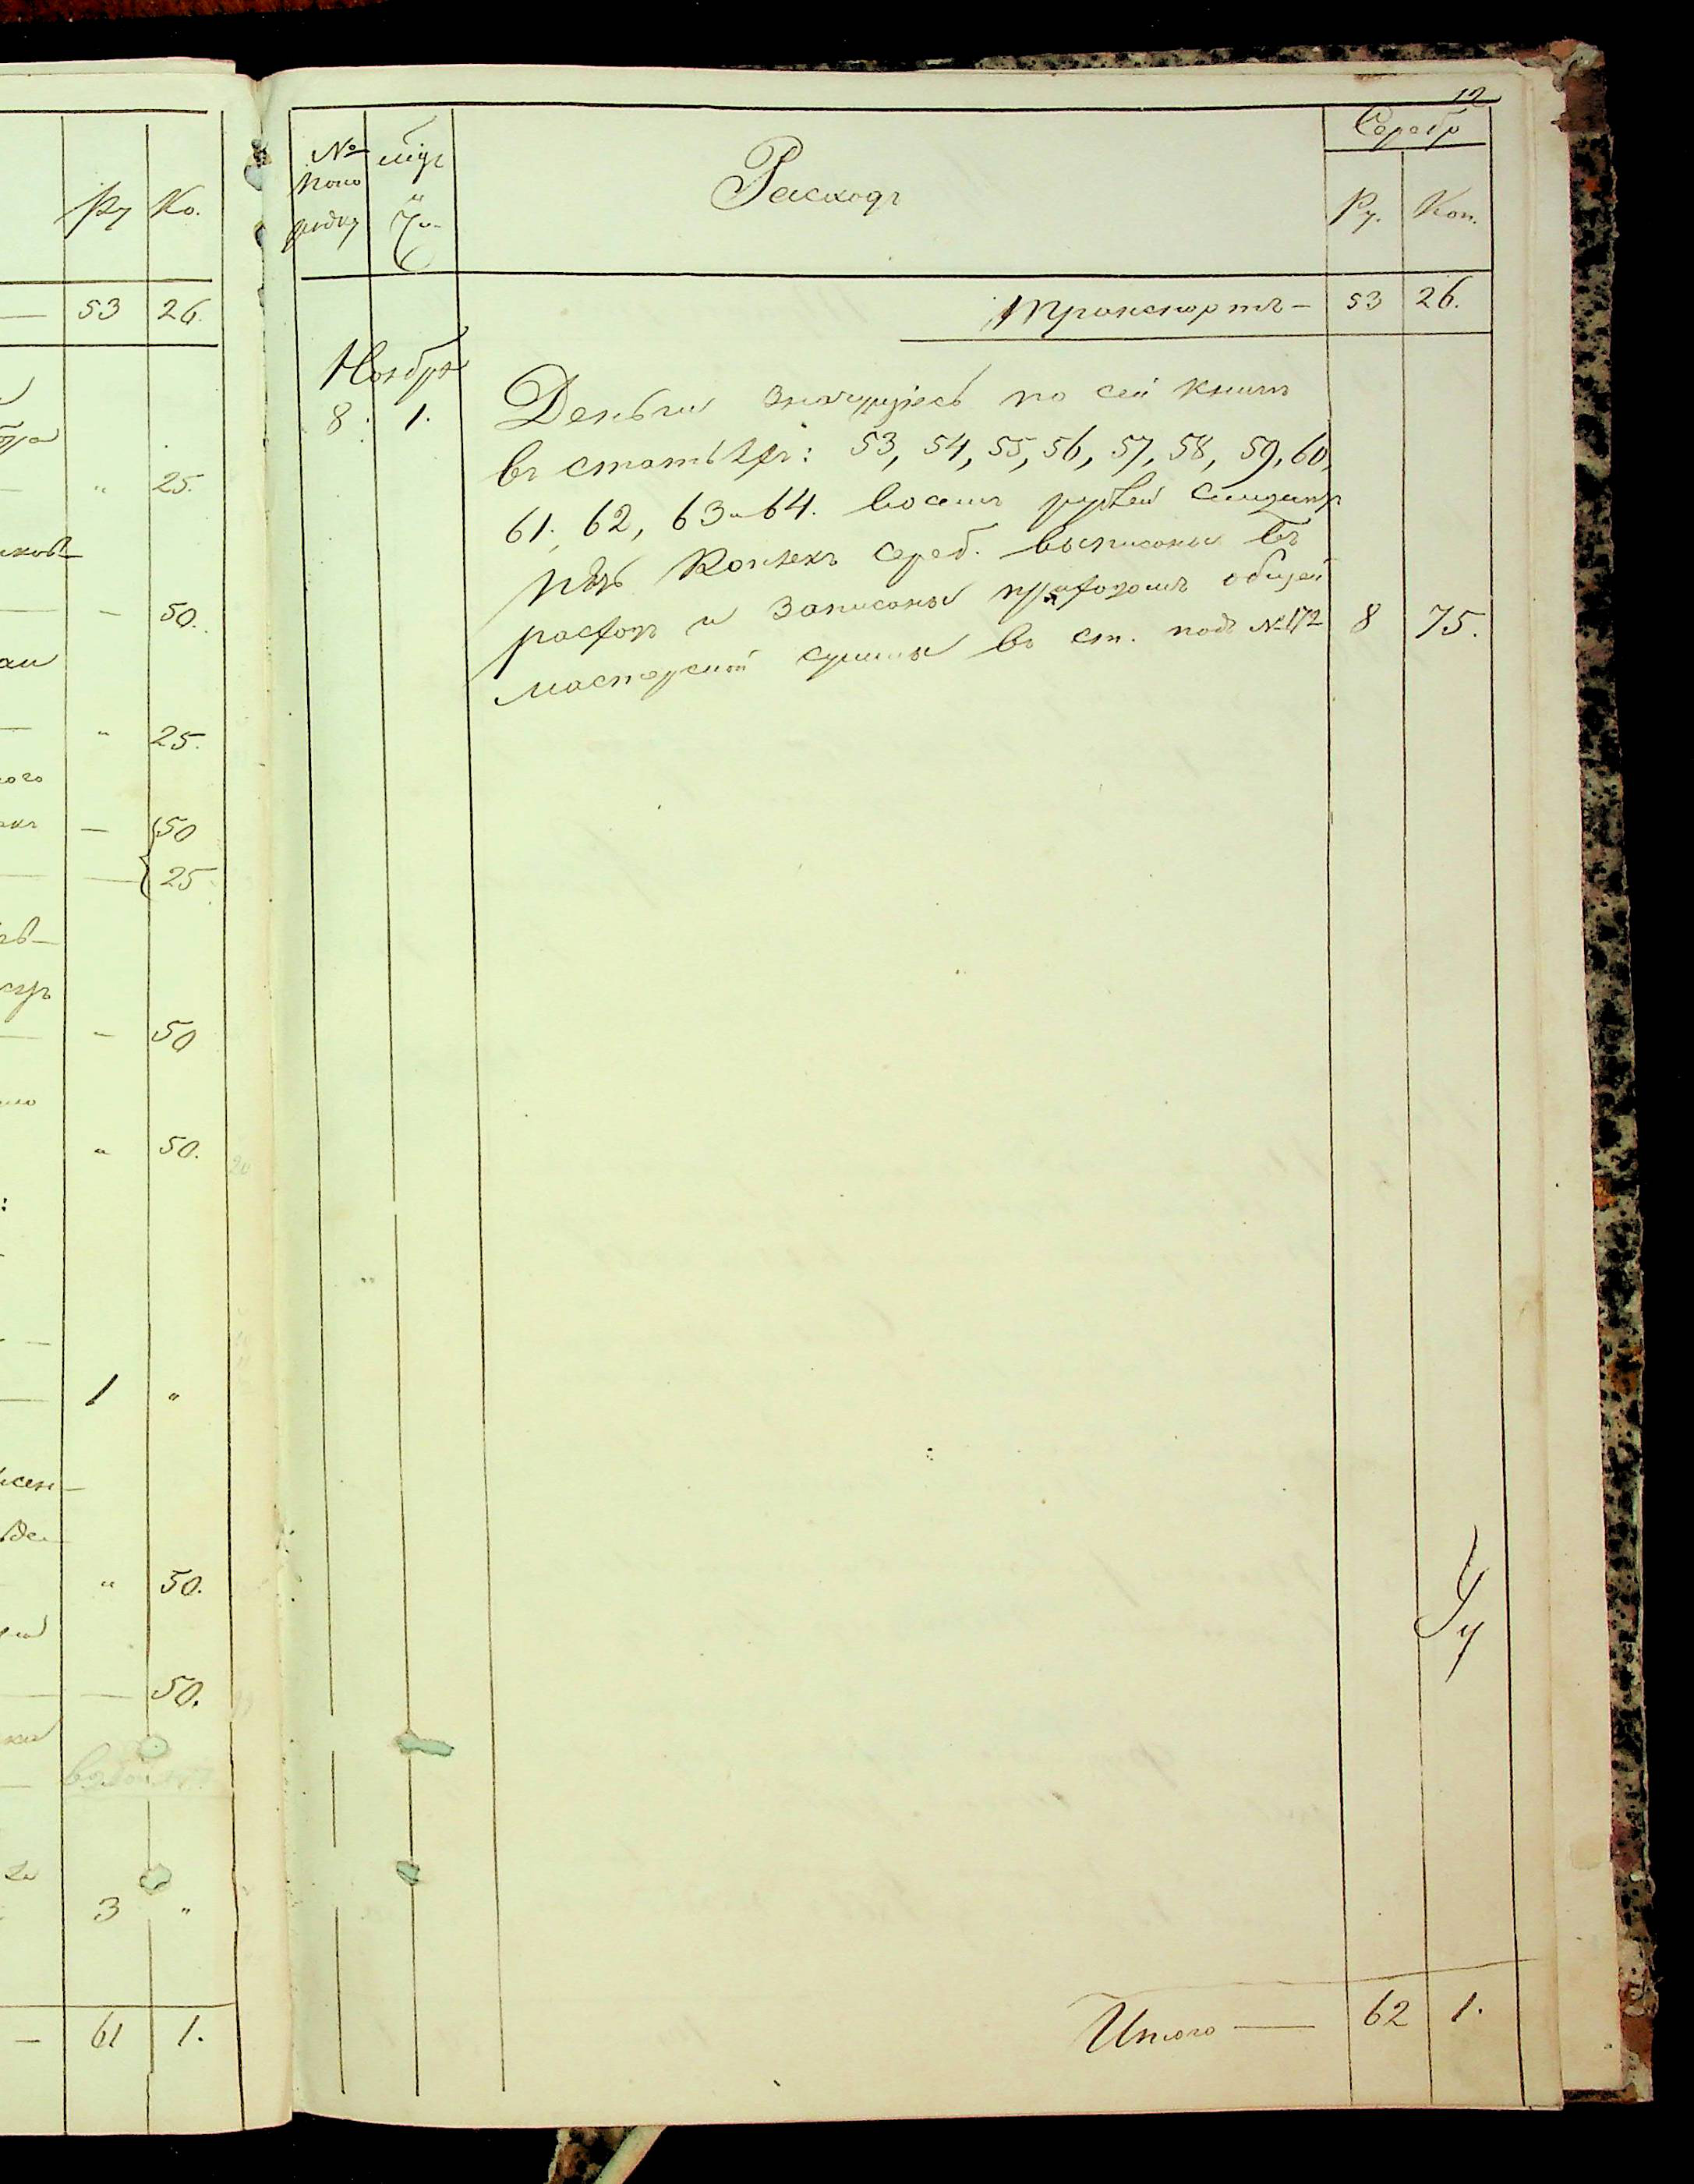 Ру Ко.
53 26.
25.
50.
25.
50
25
50
50.
1 "
50.
50.
3 "
61 1.
12
№ поно рядку
Расходъ
Серебр
Ру. Коп.
Транспортъ — 53 26.
Ноября
8. 1. Деньги значущiесь по сей книгѣ
въ статьѣхъ: 53, 54, 55, 56, 57, 58, 59, 60,
61, 62, 63 и 64. восемь рублей семдеся
пять копѣекъ сереб. выписаны въ
расходъ и записаны приходомъ общей
мастерской суммы въ ст. подъ №172 8 75.
Итого — 62 1.